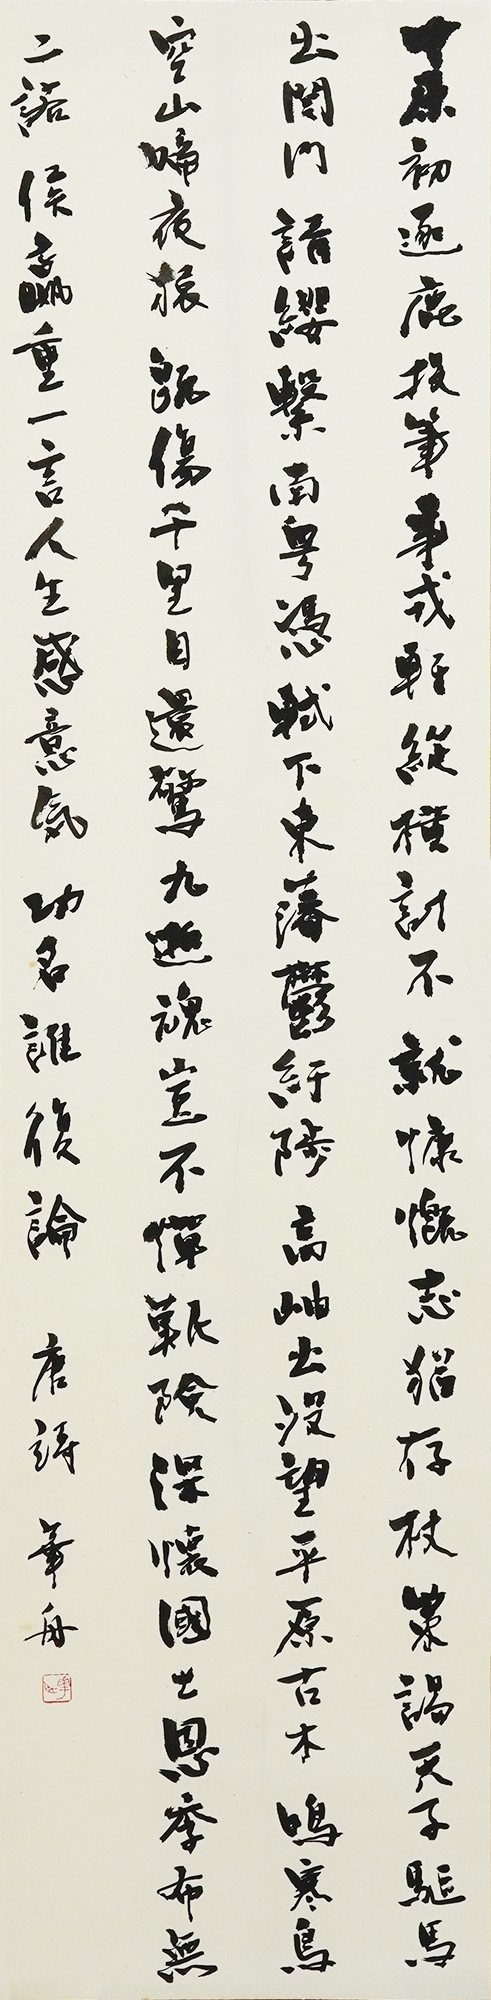 中原初逐鹿投筆事戎軒縱橫計不就慷慨志猶存杖策謁天子驅馬
出関門請纓繫南粵憑軾下東藩鬱紆陟高岫出沒望平原古木鳴寒鳥
空山啼夜猿既傷千里目還驚九逝魂豈不憚艱險深懷國士恩季布無
二諾侯嬴重一言人生感意氣功名誰復論 唐詩 舟